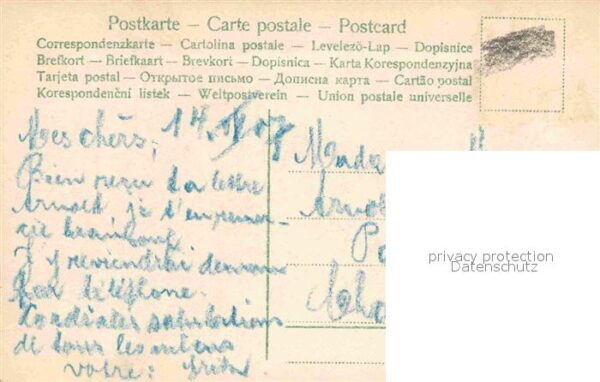 Postkarte – Carte postale – Postcard
Correspondenzkarte – Cartolina postale – Levelezö-Lap – Dopisnice
Brefkort – Briefkaart – Brevkort – Dopisnica – Karta Korespondenzyjna
Tarjeta postal – Открытое письмо – Дописна карта – Cartão postal
Korespondenčni listek – Weltpostverein – Union postale universelle
Mes chers, 14.
Bien reçu ta lettre
Arnold, je t'en remer-
cie beaucoup.
J'y reviendrai demain
par téléphone.
Cordiales salutations
de tous les miens
votre:
Mada
Arno
privacy protection
Datenschutz